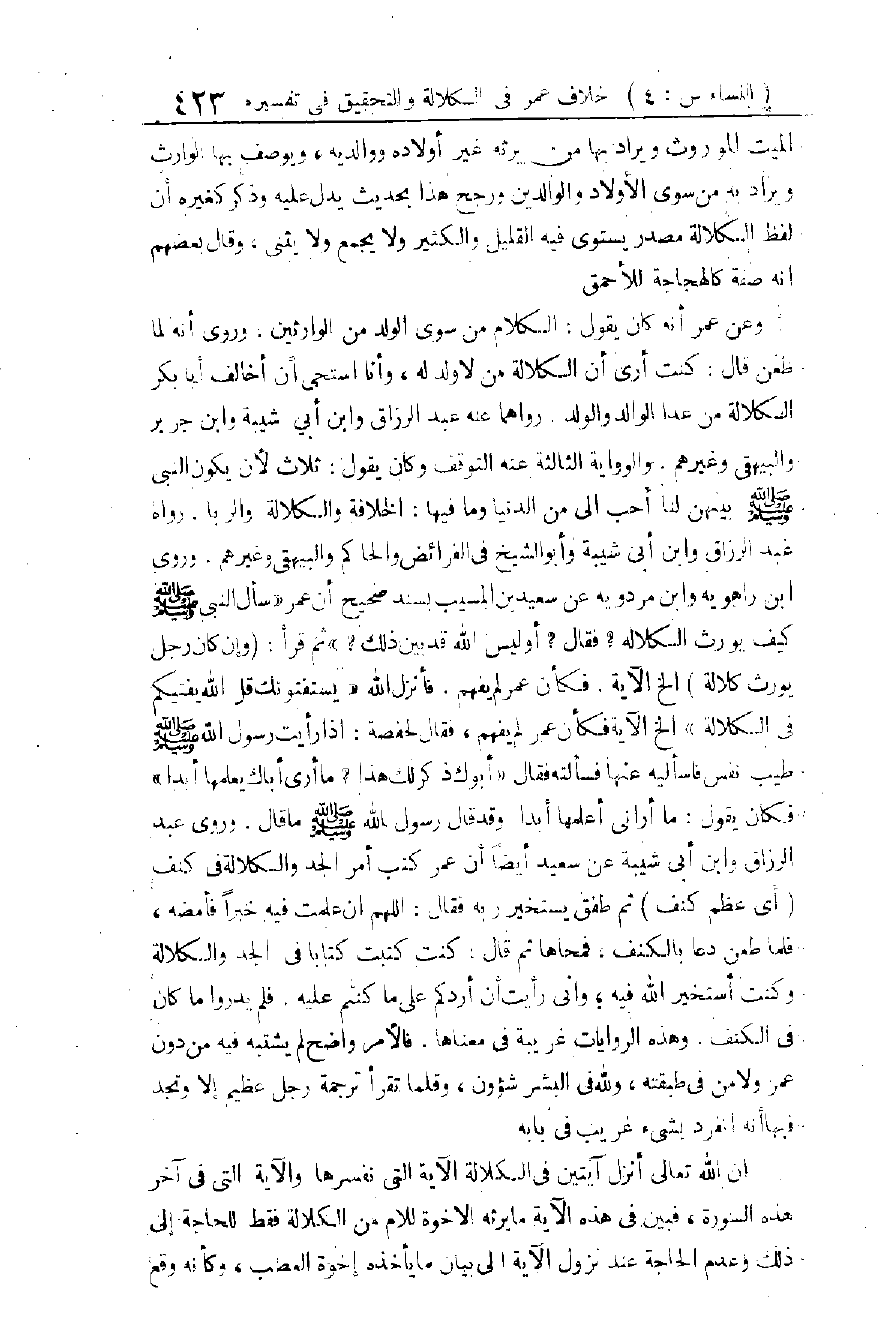 ( النساء س : ٤ ) خلاف عمر فى الكلالة والتحقيق فى تفسيره ٤٢٣
الميت الموروث ويراد بها من يرثه غير أولاده ووالديه ، ويوصف بها الوارث
ويراد به من سوى الأولاد والوالدين ورجح هذا بحديث يدل عليه وذكر كغيره أن
لفظ الكلالة مصدر يستوى فيه القليل والكثير ولا يجمع ولا يثنى ، وقال بعضهم
انه صفة كالهجاجة للأحمق
وعن عمر أنه كان يقول : الكلام من سوى الولد من الوارثين . وروى أنه لما
طعن قال : كنت أرى أن الكلالة من لا ولد له ، وأنا استحي أن أخالف أبا بكر
الكلالة من عدا الوالد والولد . رواهما عنه عبد الرزاق وابن أبي شيبة وابن جرير
والبيهقى وغيرهم . والرواية الثالثة عنه التوقف وكان يقول : ثلاث لأن يكون النبى
ﷺ بينهن لنا أحب الى من الدنيا وما فيها : الخلافة والكلالة والربا . رواه
عبد الرزاق وابن أبى شيبة وأبو الشيخ فى الفرائض والحاكم والبيهقى وغيرهم . وروى
ابن راهويه وابن مردويه عن سعيد بن المسيب بسند صحيح أن عمر « سأل النبى ﷺ
كيف يورث الكلاله ? فقال ? أوليس الله قد بين ذلك ? » ثم قرأ : (وإن كان رجل
يورث كلالة ) الخ الآية . فكأن عمر لم يفهم . فأنزل الله « يستفتونك قل الله يفتيكم
فى الكلالة » الخ الآية فكأن عمر لم يفهم ، فقال لحفصة : اذا رأيت رسول الله ﷺ
طيب نفس فاسأليه عنها فسألته فقال « أبوك ذكر لك هذا ? ما أرى أباك يعلمها أبدا »
فكان يقول : ما أراني أعلمها أبدا وقد قال رسول الله ﷺ ما قال . وروى عبد
الرزاق وابن أبى شيبة عن سعيد أيضاً أن عمر كتب أمر الجد والكلالة فى كتف
( أى عظم كتف ) ثم طفق يستخير ربه فقال : اللهم ان علمت فيه خيراً فأمضه ،
فلما طعن دعا بالكتف ، فمحاها ثم قال : كنت كتبت كتابا فى الجد والكلالة
وكنت أستخير الله فيه ، وانى رأيت أن أردكم على ما كنتم عليه . فلم يدروا ما كان
فى الكتف . وهذه الروايات غريبة فى معناها . فالأمر واضح لم يشتبه فيه من دون
عمر ولا من فى طبقته ، ولله فى البشر شؤون ، وقلما تقرأ ترجمة رجل عظيم إلا وتجد
فيها أنه انفرد بشيء غريب فى بابه
ان الله تعالى أنزل آيتين فى الكلالة الآية التى نفسرها والآية التى فى آخر
هذه السورة ، فبين فى هذه الآية ما يرثه الاخوة للام من الكلالة فقط للحاجة إلى
ذلك وعدم الحاجة عند نزول الآية الى بيان ما يأخذه إخوة العصب ، وكأنه وقع